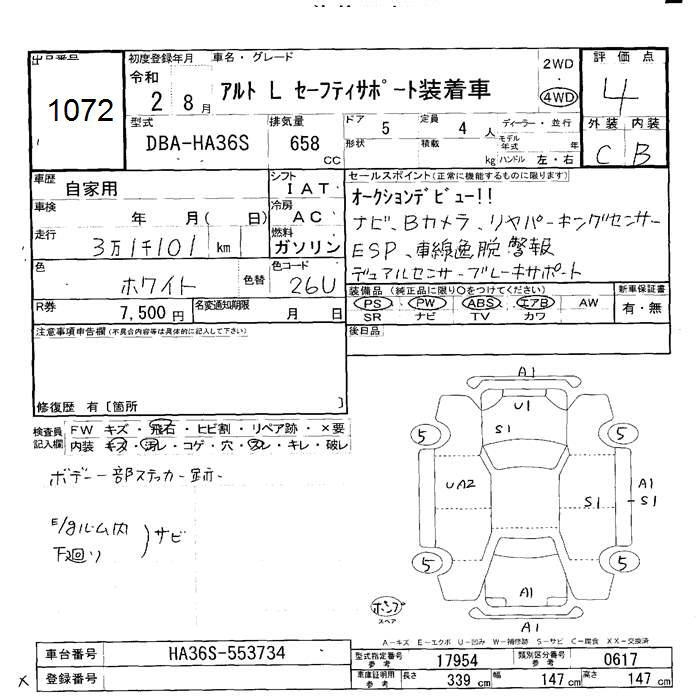 出品番号
1072
初度登録年月 車名・グレード
令和 2 8月
アルト L セーフティサポート装着車
2WD
4WD
評価点
4
外装 内装
C B
型式
DBA-HA36S
排気量
658
CC
ドア 5 定員 4 人
形状 積載 kg
ディーラー・並行
モデル年式 年
ハンドル 左・右
車歴 自家用
シフト IAT
車検 年 月( 日)
冷房 AC
走行 3万1千101 km
燃料 ガソリン
色 ホワイト 色替
色コード 26U
R券 7,500円
名変通知期限 月 日
セールスポイント(正常に機能するものに限ります)
オークションデビュー!!
ナビ、Bカメラ、リヤパーキングセンサー
ESP、車線逸脱警報
デュアルセンサーブレーキサポート
装備品(純正品に限り○をつけてください)
PS PW ABS エアB AW
SR ナビ TV カワ
新車保証書
有・無
後日品
注意事項申告欄(不具合内容等は具体的に記入して下さい)
修復歴 有〔箇所 〕
検査員記入欄
FW キズ・飛石・ヒビ割・リペア跡・×要
内装 キズ・汚レ・コゲ・穴・スレ・キレ・破レ
ボデー一部ステッカー跡
E/gルーム内
下廻り
サビ
A1
U1
S1
5
5
UA2
S1
A1
S1
5
5
A1
A1
スペア
A-キズ E-エクボ U-凹み W-補修跡 S-サビ C-腐食 XX-交換済
車台番号 HA36S-553734
登録番号
×
型式指定番号 参考 17954
類別区分番号 参考 0617
車庫証明用 参考
長さ 339 cm
幅 147 cm
高さ 147 cm